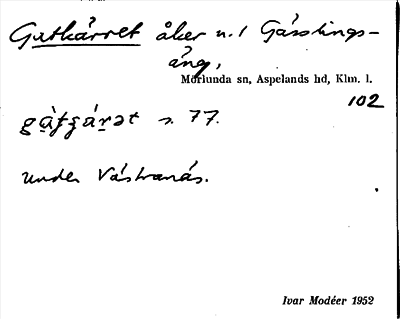 Gutkärret åker n. i Gässlings-
äng,
Mörlunda sn, Aspelands hd, Klm. l.
102
s. 77.
under Västranäs.
Ivar Modéer 1952